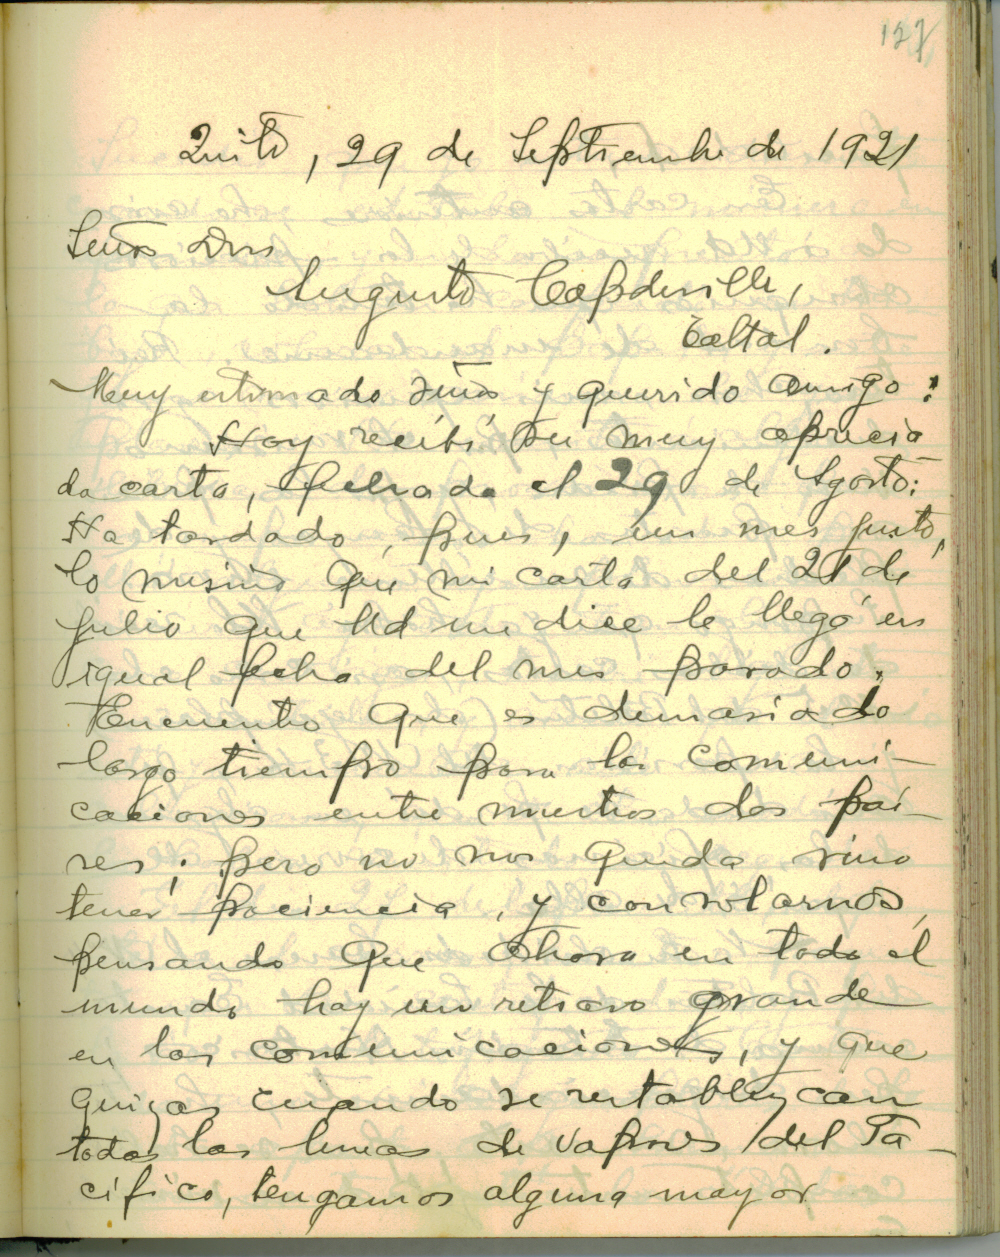 127
Quito, 29 de Septiembre de 1921
Señor Don
Augusto Capdeville,
Taltal.
Muy estimado señor y querido amigo:
Hoy recibí su muy aprecia
da carta, fechada el 29 de Agosto:
Ha tardado, pues, un mes justo,
lo mismo que mi carta del 21 de
julio que Ud me dice le llegó en
igual fecha del mes pasado.
Encuentro que es demasiado
largo tiempo para las comuni-
caciones entre nuestros dos paí-
ses; pero no nos queda sino
tener paciencia, y consolarnos,
pensando que ahora en todo el
mundo hay un retraso grande
en las comunicaciones, y que
quizas cuando se restablezcan
todas las lineas de vapores del Pa-
cifico, tengamos alguna mayor